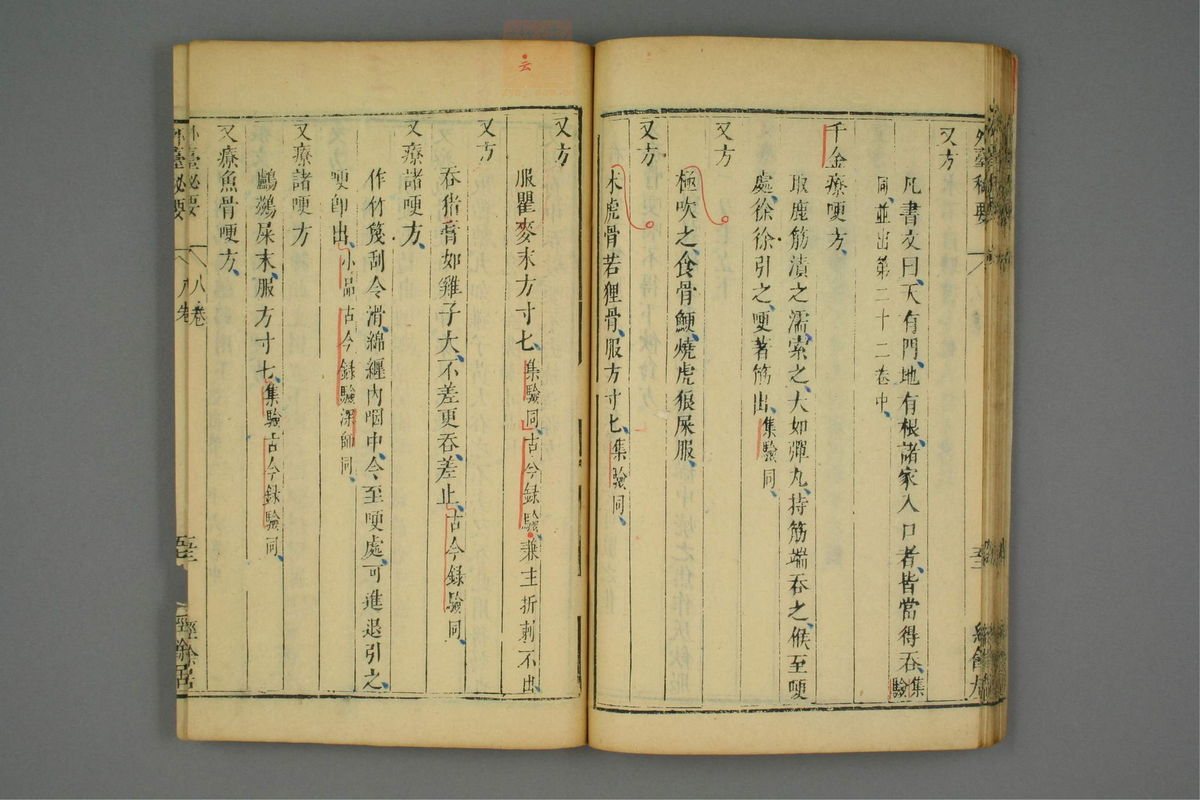 外臺秘要
又方
凡書文曰天有門地有根諸家入口者皆當得吞集驗
同並出第二十二卷中
千金療哽方
取鹿筋漬之濡索之大如彈丸持筋端吞之候至哽
處徐徐引之哽著筋出集驗同
又方
極吹之食骨鯁燒虎狼屎服
又方
木虎骨若狸骨服方寸匕集驗同
又方
服瞿麥末方寸匕集驗同古今録驗兼主折刺不出
又方
吞猪膏如雞子大不差更吞差止古今録驗同
又療諸哽方
作竹篾刮令滑綿纏內咽中令至哽處可進退引之
哽卽出小品古今録驗深師同
又療諸哽方
鸕鷀屎末服方寸匕集驗古今録驗同
又療魚骨哽方
外臺秘要
八卷
經餘居
云